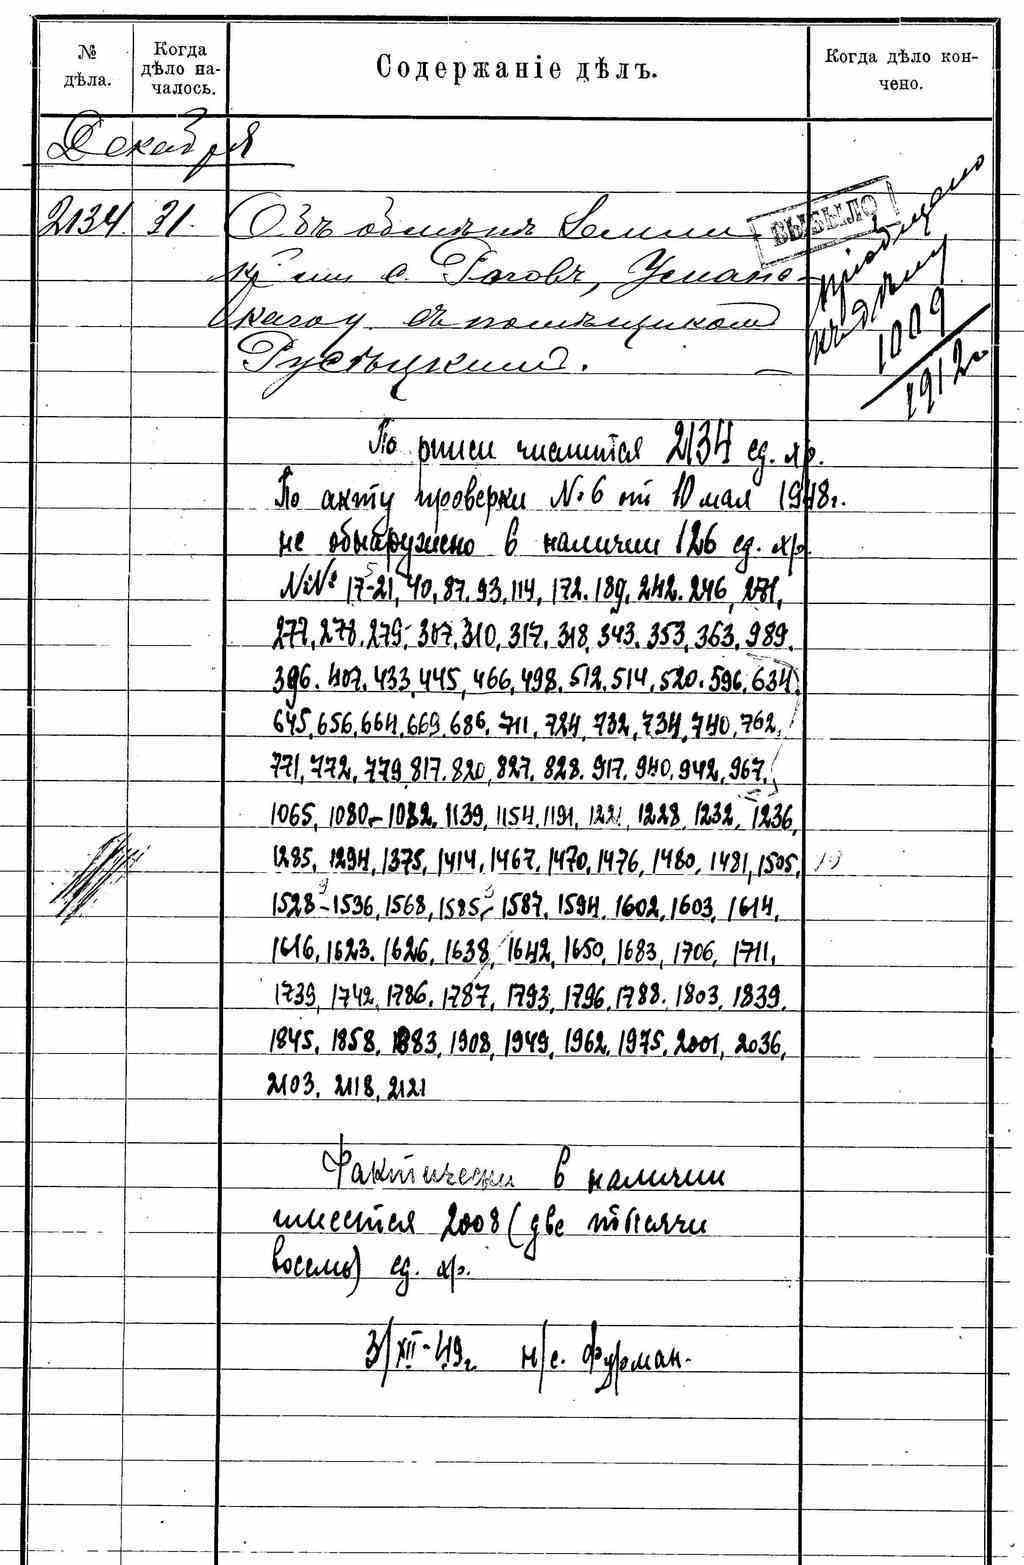 № дѣла.
Когда дѣло на-
чалось.
Содержаніе дѣлъ.
Когда дѣло кон-
чено.
Декабря
2134. 31. Объ обмѣнѣ земли
кр-ми с. Рогов, Уманс-
каго у. съ помѣщиком
Русѣцким.
ВЫБЫЛО
пріобщено
къ дѣлу
1009
1912 г.
По описи числится 2134 ед. хр.
По акту проверки № 6 от 10 мая 1948 г.
не обнаружено в наличии 126 ед. хр.
№№ 17-21, 40, 87, 93, 114, 172, 189, 242, 246, 271,
277, 278, 279, 307, 310, 317, 318, 343, 353, 363, 989,
396, 407, 433, 445, 466, 498, 512, 514, 520, 596, 634,
645, 656, 664, 669, 686, 711, 724, 732, 734, 740, 762,
771, 772, 779, 817, 820, 827, 828, 917, 940, 942, 967,
1065, 1080-1082, 1139, 1154, 1191, 1221, 1228, 1232, 1236,
1285, 1294, 1375, 1414, 1467, 1470, 1476, 1480, 1481, 1505,
1528-1536, 1568, 1585-1587, 1594, 1602, 1603, 1614,
1616, 1623, 1626, 1638, 1642, 1650, 1683, 1706, 1711,
1739, 1742, 1786, 1787, 1793, 1796, 1788, 1803, 1839,
1845, 1858, 1883, 1908, 1949, 1962, 1975, 2001, 2036,
2103, 2118, 2121
Фактически в наличии
имеется 2008 (две тысячи
восемь) ед. хр.
3/XII-49 г. н/с. Фурман.